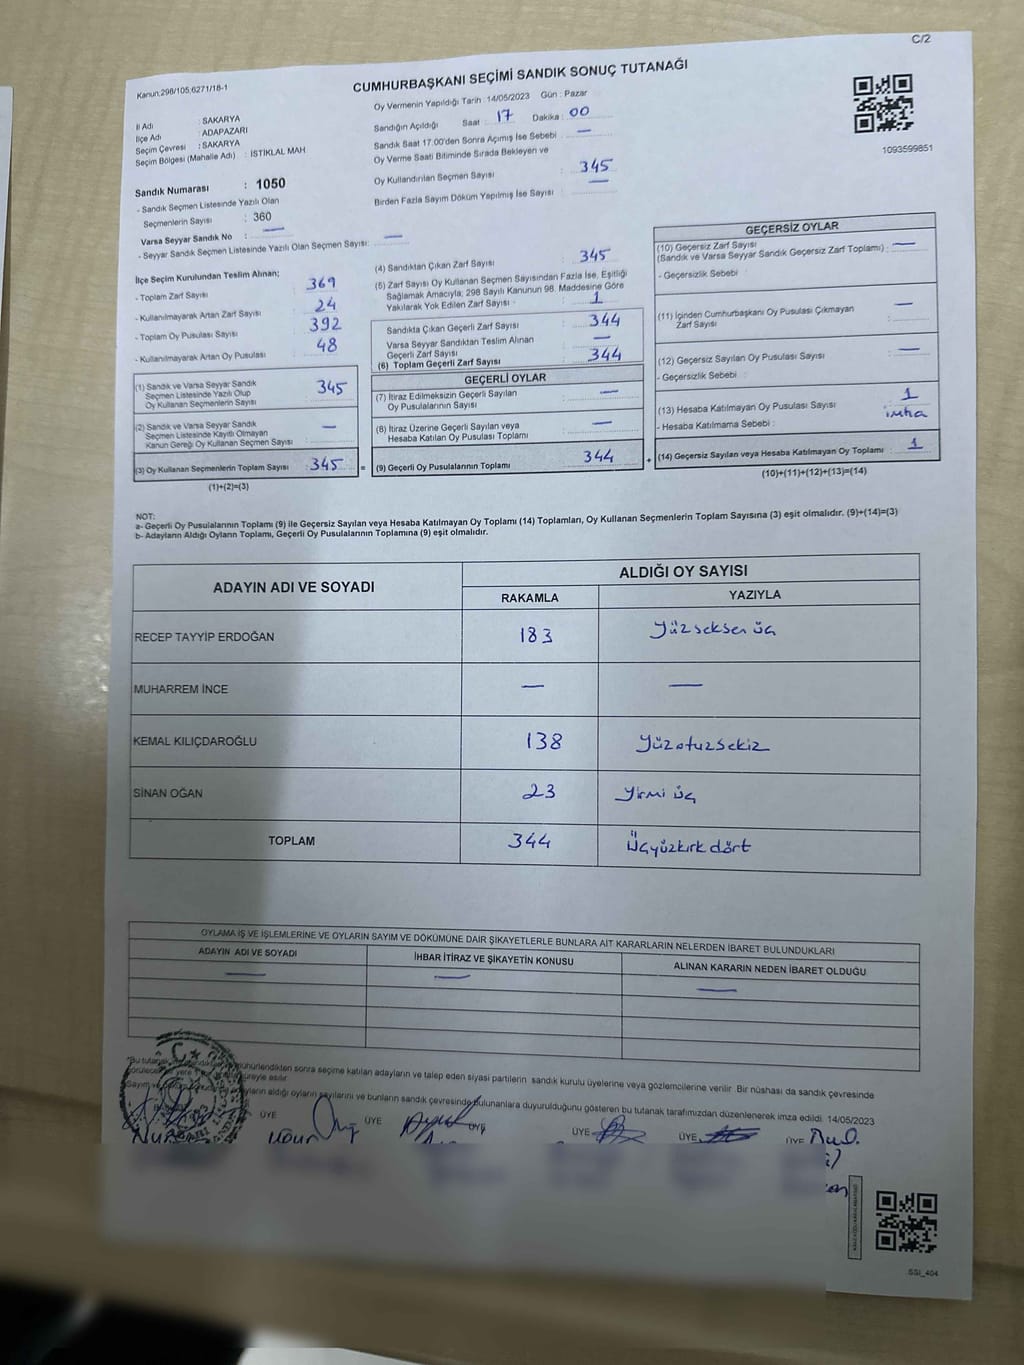 C/2
Kanun:298/105,6271/18-1
CUMHURBAŞKANI SEÇİMİ SANDIK SONUÇ TUTANAĞI
Oy Vermenin Yapıldığı Tarih : 14/05/2023 Gün : Pazar
İl Adı : SAKARYA
İlçe Adı : ADAPAZARI
Seçim Çevresi : SAKARYA
Seçim Bölgesi (Mahalle Adı) : İSTİKLAL MAH
Sandık Numarası : 1050
- Sandık Seçmen Listesinde Yazılı Olan
Seçmenlerin Sayısı : 360
Varsa Seyyar Sandık No : —
- Seyyar Sandık Seçmen Listesinde Yazılı Olan Seçmen Sayısı: —
Sandığın Açıldığı Saat : 17 Dakika : 00
Sandık Saat 17.00'den Sonra Açımış İse Sebebi : —
Oy Verme Saati Bitiminde Sırada Bekleyen ve
Oy Kullandırılan Seçmen Sayısı : 345
Birden Fazla Sayım Döküm Yapılmış İse Sayısı : —
1093599851
İlçe Seçim Kurulundan Teslim Alınan;
- Toplam Zarf Sayısı : 369
- Kullanılmayarak Artan Zarf Sayısı : 24
- Toplam Oy Pusulası Sayısı : 392
- Kullanılmayarak Artan Oy Pusulası : 48
(1) Sandık ve Varsa Seyyar Sandık
Seçmen Listesinde Yazılı Olup
Oy Kullanan Seçmenlerin Sayısı : 345
(2) Sandık ve Varsa Seyyar Sandık
Seçmen Listesinde Kayıtlı Olmayan
Kanun Gereği Oy Kullanan Seçmen Sayısı : —
(3) Oy Kullanan Seçmenlerin Toplam Sayısı : 345 =
(1)+(2)=(3)
(4) Sandıktan Çıkan Zarf Sayısı : 345
(5) Zarf Sayısı Oy Kullanan Seçmen Sayısından Fazla İse, Eşitliği
Sağlamak Amacıyla; 298 Sayılı Kanunun 98. Maddesine Göre
Yakılarak Yok Edilen Zarf Sayısı : 1
Sandıkta Çıkan Geçerli Zarf Sayısı : 344
Varsa Seyyar Sandıktan Teslim Alınan
Geçerli Zarf Sayısı : —
(6) Toplam Geçerli Zarf Sayısı : 344
GEÇERLİ OYLAR
(7) İtiraz Edilmeksizin Geçerli Sayılan
Oy Pusulalarının Sayısı : —
(8) İtiraz Üzerine Geçerli Sayılan veya
Hesaba Katılan Oy Pusulası Toplamı : —
(9) Geçerli Oy Pusulalarının Toplamı : 344 +
GEÇERSİZ OYLAR
(10) Geçersiz Zarf Sayısı
(Sandık ve Varsa Seyyar Sandık Geçersiz Zarf Toplamı) : —
- Geçersizlik Sebebi :
(11) İçinden Cumhurbaşkanı Oy Pusulası Çıkmayan
Zarf Sayısı : —
(12) Geçersiz Sayılan Oy Pusulası Sayısı : —
- Geçersizlik Sebebi :
(13) Hesaba Katılmayan Oy Pusulası Sayısı : 1
- Hesaba Katılmama Sebebi : imha
(14) Geçersiz Sayılan veya Hesaba Katılmayan Oy Toplamı : 1
(10)+(11)+(12)+(13)=(14)
NOT:
a- Geçerli Oy Pusulalarının Toplamı (9) ile Geçersiz Sayılan veya Hesaba Katılmayan Oy Toplamı (14) Toplamları, Oy Kullanan Seçmenlerin Toplam Sayısına (3) eşit olmalıdır. (9)+(14)=(3)
b- Adayların Aldığı Oyların Toplamı, Geçerli Oy Pusulalarının Toplamına (9) eşit olmalıdır.
ADAYIN ADI VE SOYADI ALDIĞI OY SAYISI
RAKAMLA YAZIYLA
RECEP TAYYİP ERDOĞAN 183 Yüzseksen üç
MUHARREM İNCE — —
KEMAL KILIÇDAROĞLU 138 Yüzotuzsekiz
SİNAN OĞAN 23 Yirmi üç
TOPLAM 344 Üçyüzkırk dört
OYLAMA İŞ VE İŞLEMLERİNE VE OYLARIN SAYIM VE DÖKÜMÜNE DAİR ŞİKAYETLERLE BUNLARA AİT KARARLARIN NELERDEN İBARET BULUNDUKLARI
ADAYIN ADI VE SOYADI İHBAR İTİRAZ VE ŞİKAYETİN KONUSU ALINAN KARARIN NEDEN İBARET OLDUĞU
— — —
"Bu tutanak mühürlendikten sonra seçime katılan adayların ve talep eden siyasi partilerin sandık kurulu üyelerine veya gözlemcilerine verilir. Bir nüshası da sandık çevresinde
süreyle asılır.
Sayım aldığı oyların sayılarını ve bunların sandık çevresinde bulunanlara duyurulduğunu gösteren bu tutanak tarafımızdan düzenlenerek imza edildi. 14/05/2023
ÜYE ÜYE ÜYE ÜYE ÜYE ÜYE
SSI_404